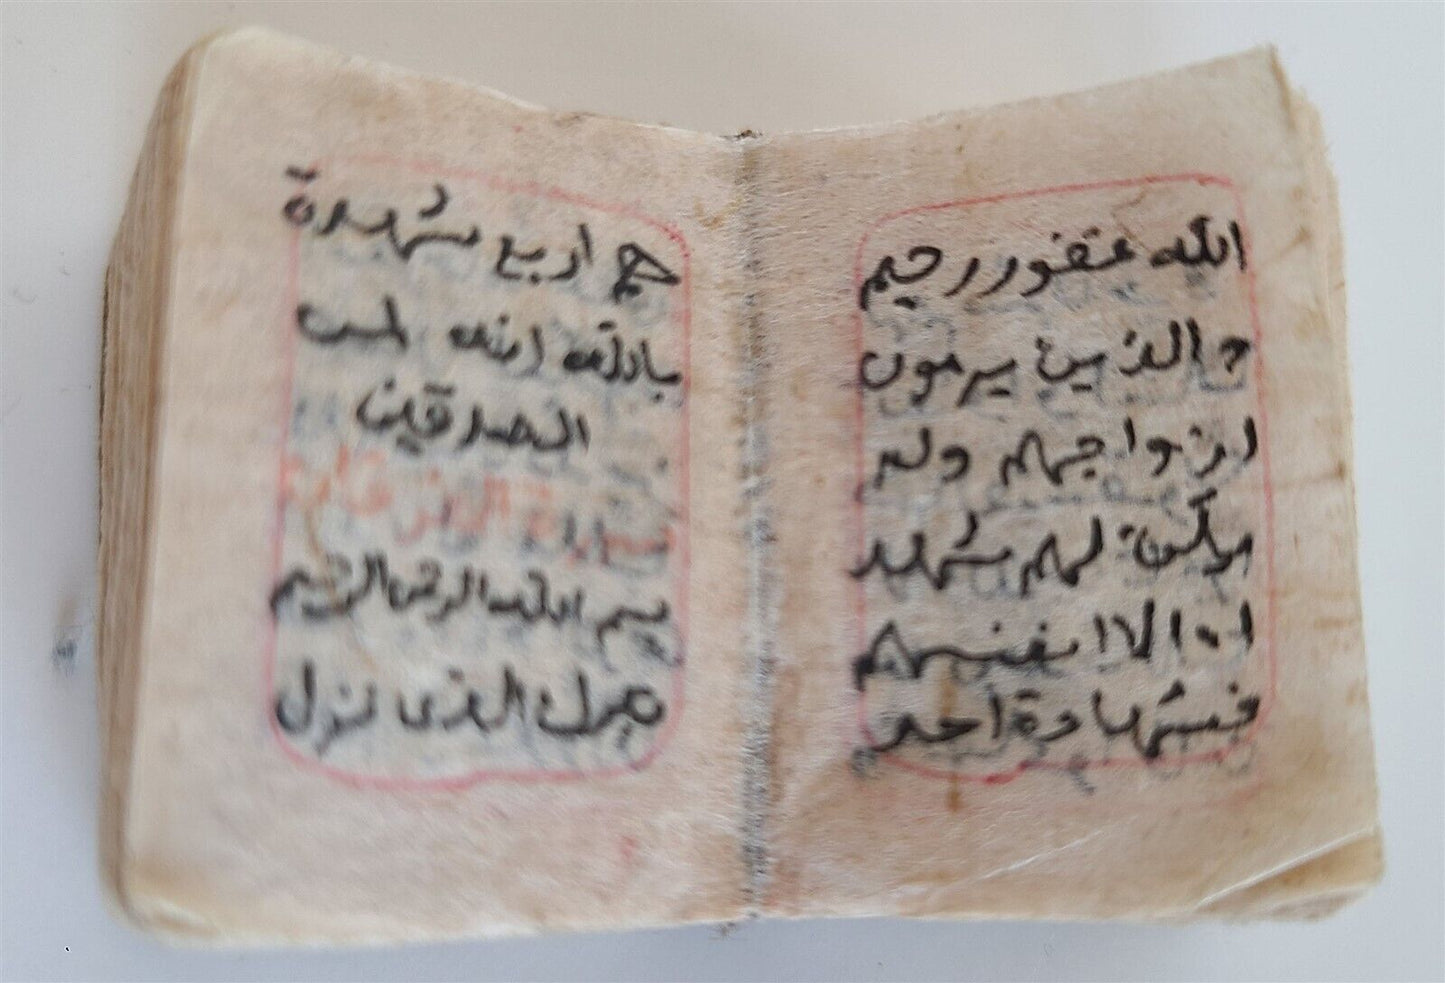 الله غفور رحيم
والذين يرمون
ازواجهم ولم
يكن لهم شهد
ا الا انفسهم
فشهادة احد
هم اربع شهدة
بالله انه لمن
الصدقين
سورة الفرقان
بسم الله الرحمن الرحيم
تبرك الذى نزل